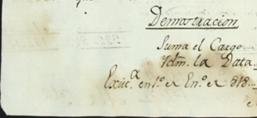 Demostracion
Suma el Cargo
Ydm. la Data
en 1.º de En.º de 818